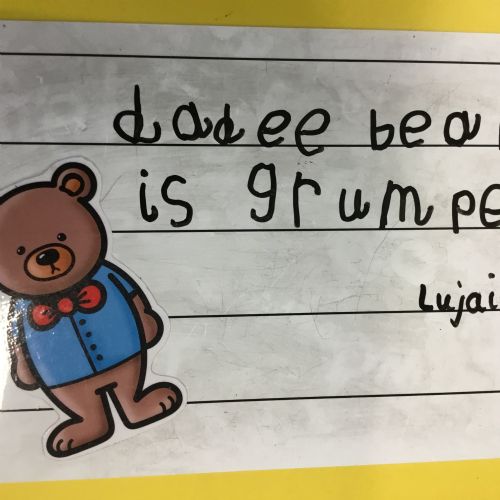 dadee bear
is grumpe
Lujai